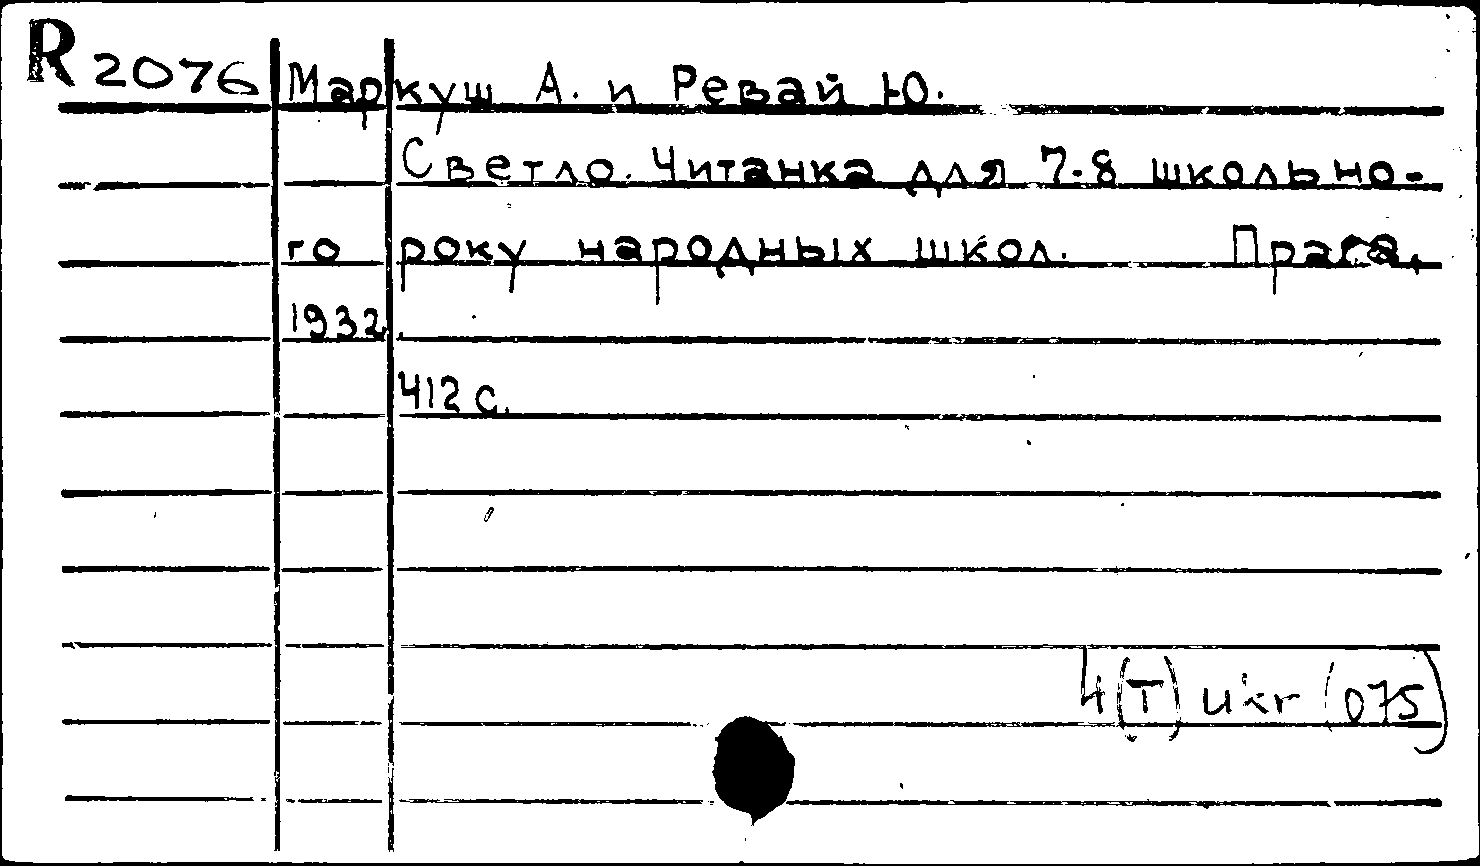 R 2076 Маркуш А. и Ревай Ю.
Светло. Читанка для 7-8 школьно-
го року народных школ. Прага,
1932.
412 с.
4(T) ukr (075)